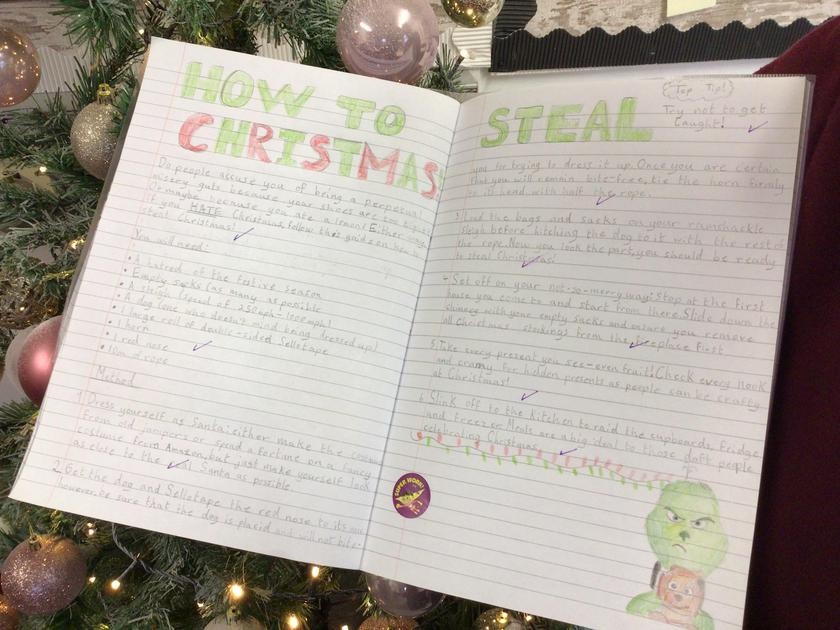 HOW TO
CHRISTMAS
Do people accuse you of being a perpetual
misery guts because your shoes are too tight?
Or maybe because you ate a lemon? Either way,
if you HATE Christmas, follow this guide on how to
steal Christmas!
You will need:
• A hatred of the festive season
• Empty sacks (as many as possible
• A sleigh (speed of 250mph-1000mph)
• A dog (one who doesn't mind being dressed up)
• 1 large roll of double-sided Sellotape
• 1 horn
• 1 red nose
• 10m of rope
Method
1. Dress yourself as Santa: either make the
from old jumpers or spend a fortune on a fancy
costume from Amazon, but just make yourself look
as close to the real Santa as possible.
2. Get the dog and Sellotape the red nose to its
however, be sure that the dog is placid and will not bite
STEAL
Top Tip!
Try not to get
Caught!
you for trying to dress it up. Once you are certain
that you will remain bite-free, tie the horn firmly
to its head with half the rope.
3. Load the bags and sacks on your ramshackle
sleigh before hitching the dog to it with the rest of
the rope. Now you look the part, you should be ready
to steal Christmas!
4. Set off on your not-so-merry way: stop at the first
house you come to and start from there. Slide down the
chimney with your empty sacks and ensure you remove
all Christmas stockings from the fireplace first.
5. Take every present you see-even fruit! Check every nook
and cranny for hidden presents as people can be crafty
at Christmas!
6. Slink off to the kitchen to raid the cupboards, fridge
and freezer. Meals are a big ideal to those daft people
celebrating Christmas.
SUPER WORK!